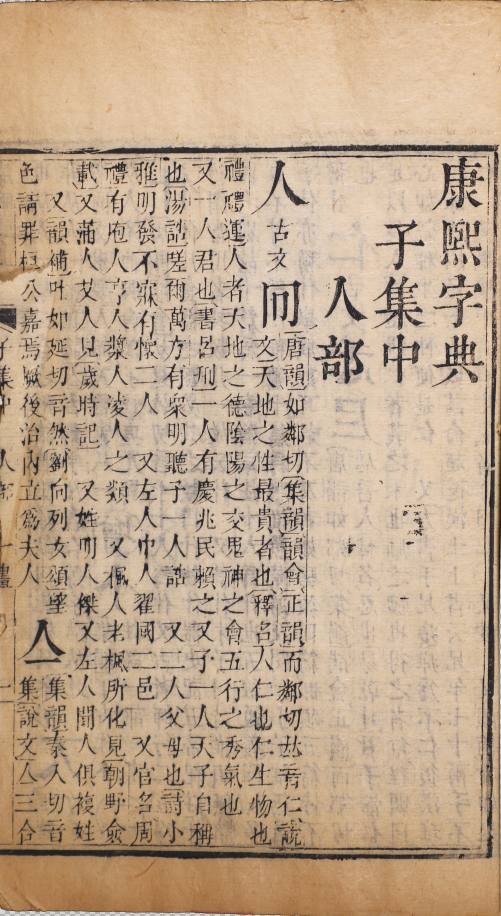 康熙字典
子集中
人部
人 古文 𠔽 唐韻如鄰切集韻韻會正韻而鄰切𠀤音仁說
文天地之性最貴者也釋名人仁也仁生物也
禮禮運人者天地之德陰陽之交鬼神之會五行之秀氣也
又一人君也書呂刑一人有慶兆民賴之又予一人天子自稱
也湯誥嗟爾萬方有衆明聽予一人誥 又二人父母也詩小
雅明發不寐有懷二人 又左人中人翟國二邑 又官名周
禮有庖人亨人漿人凌人之類 又楓人老楓所化見朝野僉
載又蒲人艾人見歲時記 又姓明人傑又左人聞人俱複姓
又韻補叶如延切音然劉向列女頌望
色請罪桓公嘉焉厥後治內立爲夫人
亼 集韻秦入切音
集說文亼三合
子集中 人部 一畫 一